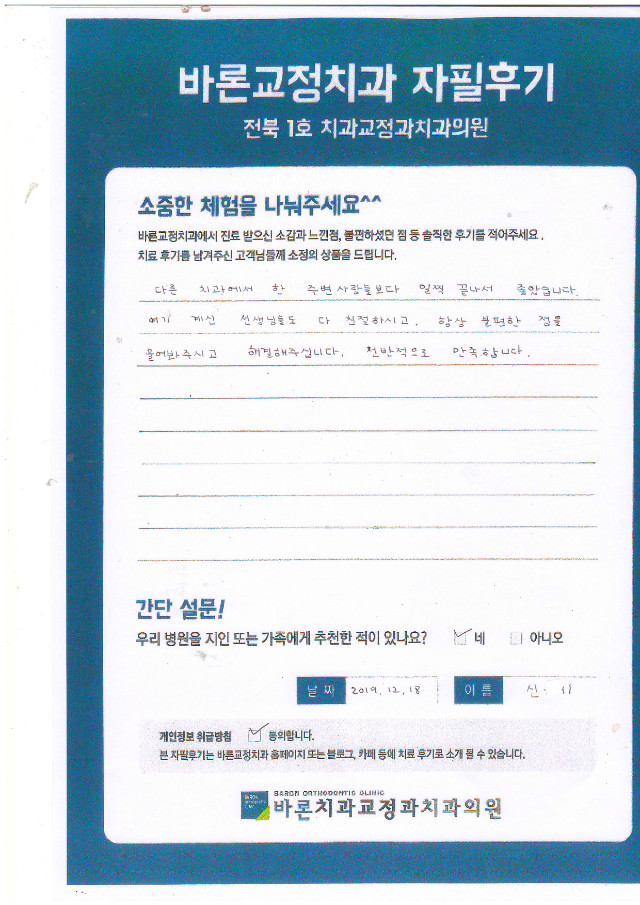 바론교정치과 자필후기
전북 1호 치과교정과치과의원
소중한 체험을 나눠주세요^^
바른교정치과에서 진료 받으신 소감과 느낀점, 불편하셨던 점 등 솔직한 후기를 적어주세요.
치료 후기를 남겨주신 고객님들께 소정의 상품을 드립니다.
다른 치과에서 한 주변사람들보다 일찍 끝나서 좋았습니다.
여기 계신 선생님들도 다 친절하시고, 항상 불편한 점을
물어봐주시고 해결해주십니다. 전반적으로 만족합니다.
간단 설문!
우리 병원을 지인 또는 가족에게 추천한 적이 있나요? 네 아니오
날 짜 2019.12.18 이 름 신
개인정보 취급방침 동의합니다.
본 자필후기는 바론교정치과 홈페이지 또는 블로그, 카페 등에 치료 후기로 소개 될 수 있습니다.
BARON ORTHODONTIC CLINIC
바론치과교정과치과의원